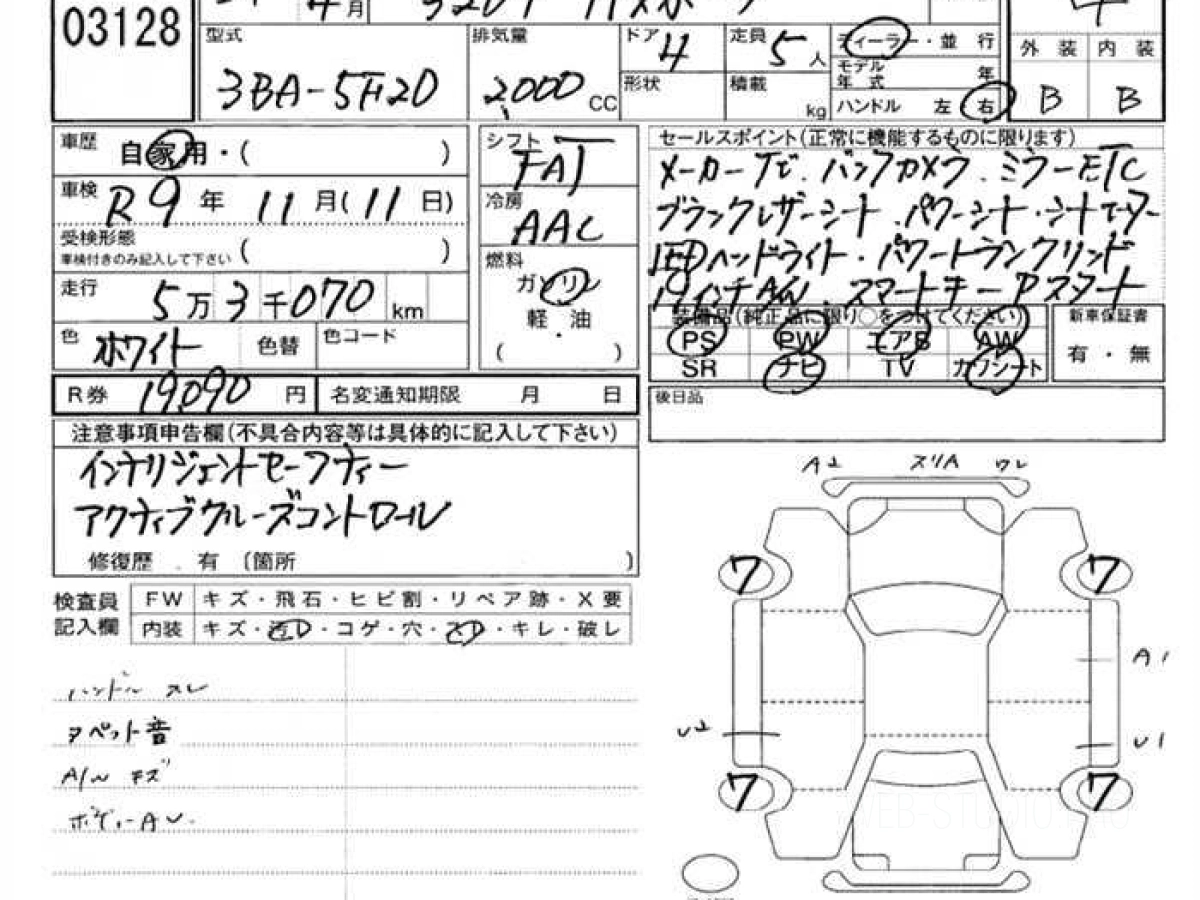 03128
4月 320i Mスポーツ
型式 排気量 ドア 4 定員 5人 ディーラー・並 行 外 装 内 装
3BA-5F20 2000 CC 形状 積載 kg モデル年式 年
ハンドル 左 右 B B
車歴 自家用・( ) シフト FAT セールスポイント(正常に機能するものに限ります)
メーカーナビ.バックカメラ.ミラーETC
車検 R9年 11月(11日) 冷房 AAC ブラックレザーシート.パワーシート・シートヒーター
受検形態 ( ) LEDヘッドライト・パワートランクリッド
車検付きのみ記入して下さい 燃料 19インチAW.スマートキー Pスタート
走行 5万3千070km ガソリン 装備品(純正品に限り○をつけてください) 新車保証書
軽・油 PS PW エアB AW 有・無
色 ホワイト 色替 色コード ( ) SR ナビ TV カワシート
R券 19,090円 名変通知期限 月 日 後日品
注意事項申告欄(不具合内容等は具体的に記入して下さい)
インテリジェントセーフティー
アクティブクルーズコントロール
修復歴 . 有 〔箇所 )
A2 スリA ワレ
検査員 FW キズ・飛石・ヒビ割・リペア跡・X要
記入欄 内装 キズ・汚レ・コゲ・穴・スレ・キレ・破レ
7 7
ハンドル スレ
A1
タペット音
U2 U1
A/W キズ
7 7
ボディーAU.
WEB-STUDIO.PRO